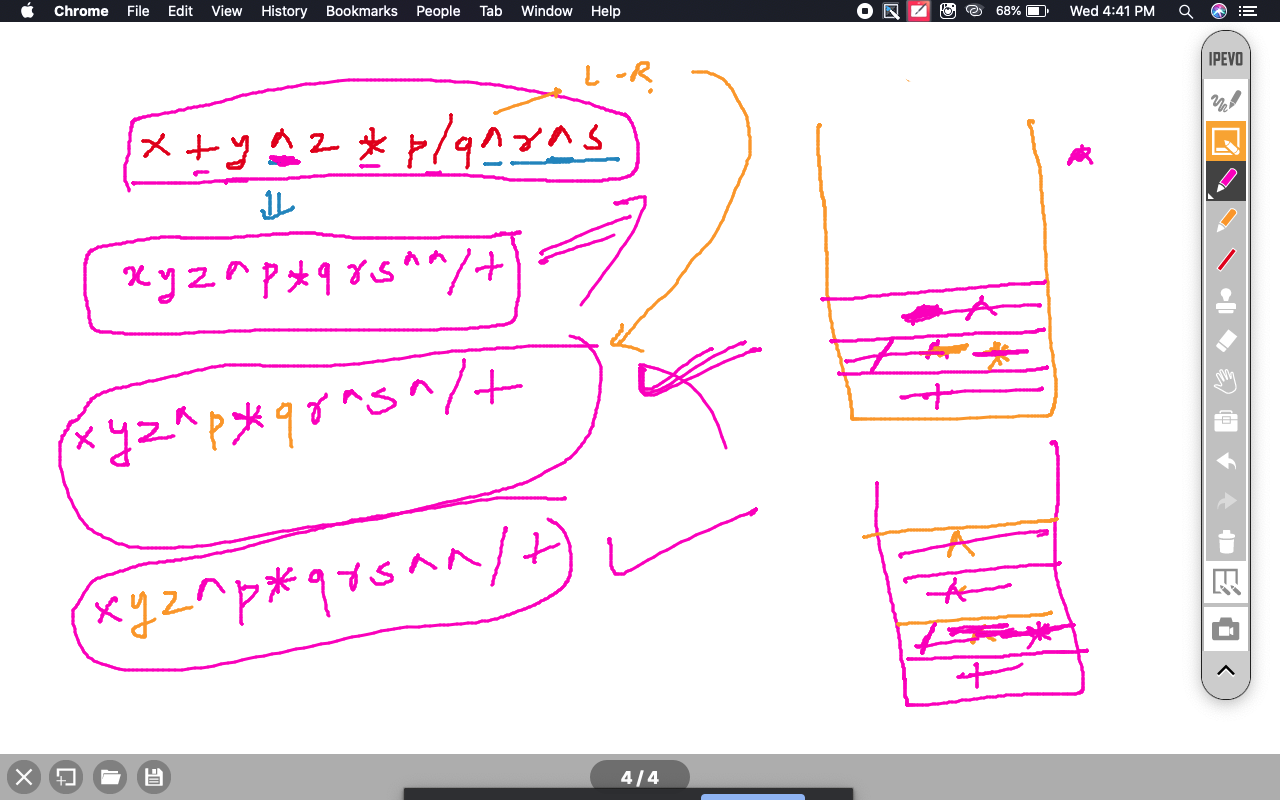 Chrome File Edit View History Bookmarks People Tab Window Help 68% Wed 4:41 PM
IPEVO
L-R
x+y^z*p/q^r^s
xyz^p*qrs^^/+
xyz^p*qr^s^/+
xyz^p*qrs^^/+
^
/ *
+
^
^
/ *
+
4 / 4